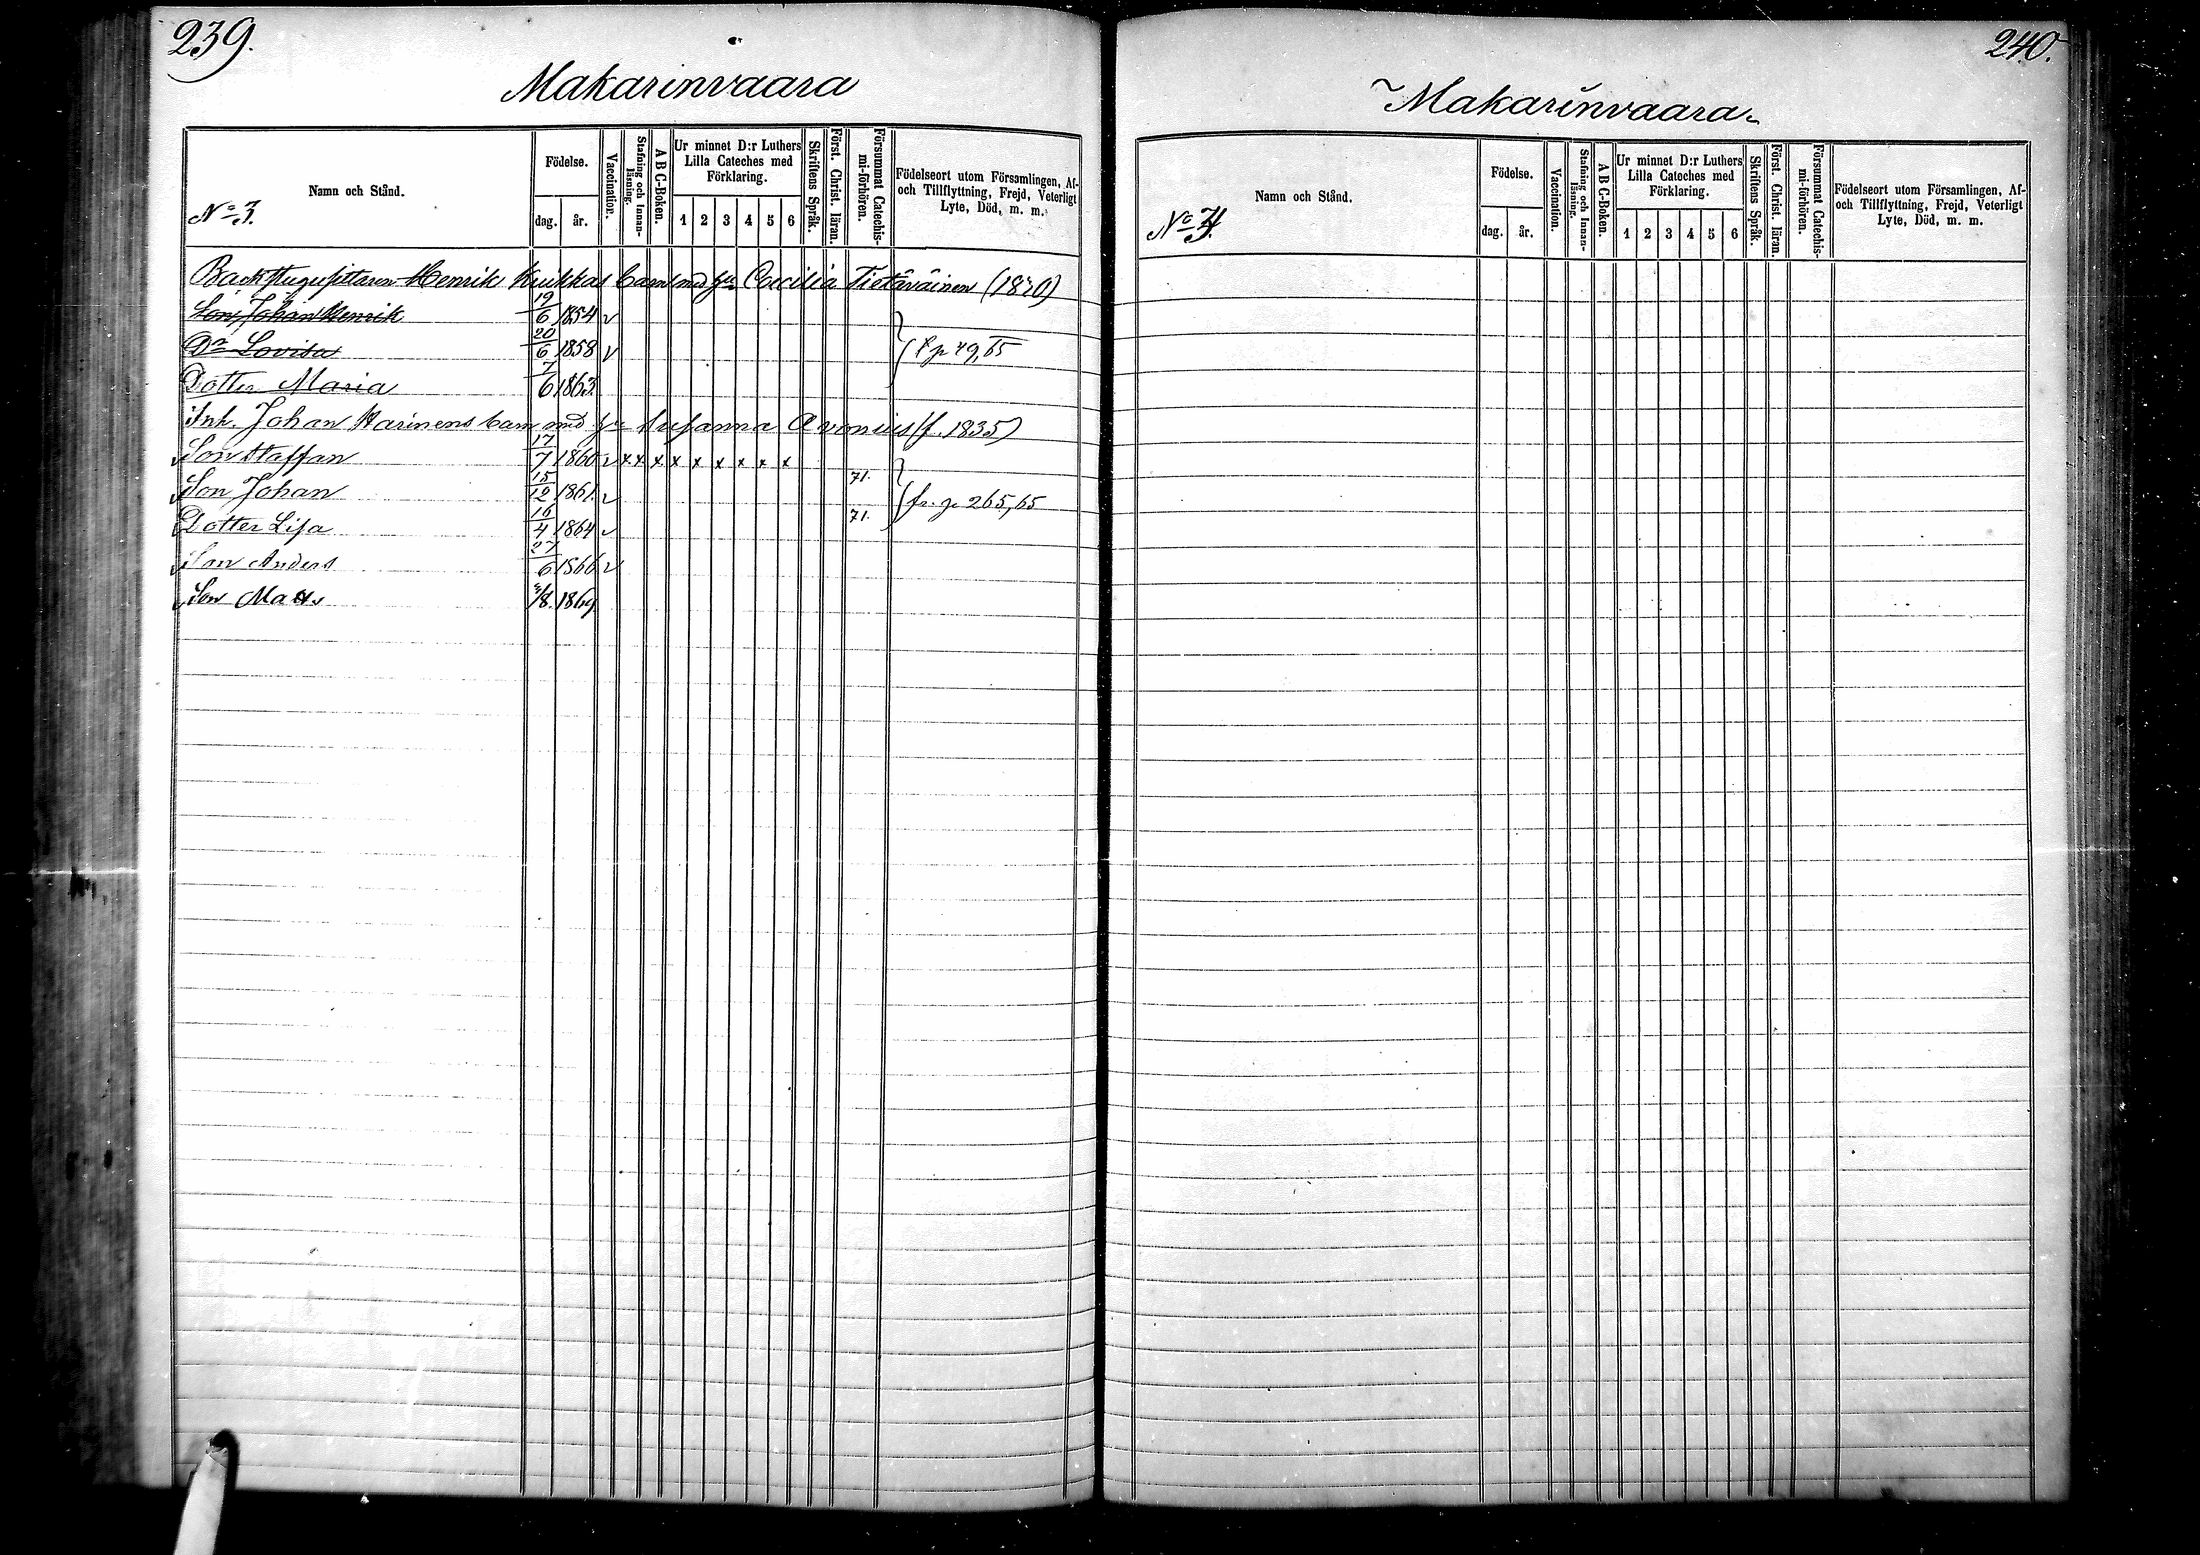 239.
Makarinvaara
Namn och Stånd.
No 3.
Födelse.
dag. år.
Vaccination.
Stafning och Innanläsning.
A B C-Boken.
Ur minnet D:r Luthers Lilla Cateches med Förklaring.
1 2 3 4 5 6
Skriftens Språk.
Först. Christ. läran.
Försummat Catechismi-förhören.
Födelseort utom Församlingen, Af- och Tillflyttning, Frejd, Veterligt Lyte, Död, m. m.
Backstugusittaren Henrik Kuikkas barn med h:u Cecilia Tietäväinen (1820)
Son Johan Henrik 19/6 1854 v
Dr Lovisa 20/6 1858 v
p 49, 65
Dotter Maria 7/6 1863
Inh. Johan Karinens barn med h:u Susanna Avonius (f. 1835)
Son Staffan 17/7 1860 v x x x x x x x x x
Son Johan 15/12 1861. v 71.
fr. p 265, 65
Dotter Lisa 16/4 1864 v 71.
Son Anders 27/6 1866 v
Son Matts 3/8. 1869
240.
Makarinvaara
Namn och Stånd.
No 4.
Födelse.
dag. år.
Vaccination.
Stafning och Innanläsning.
A B C-Boken.
Ur minnet D:r Luthers Lilla Cateches med Förklaring.
1 2 3 4 5 6
Skriftens Språk.
Först. Christ. läran.
Försummat Catechismi-förhören.
Födelseort utom Församlingen, Af- och Tillflyttning, Frejd, Veterligt Lyte, Död, m. m.